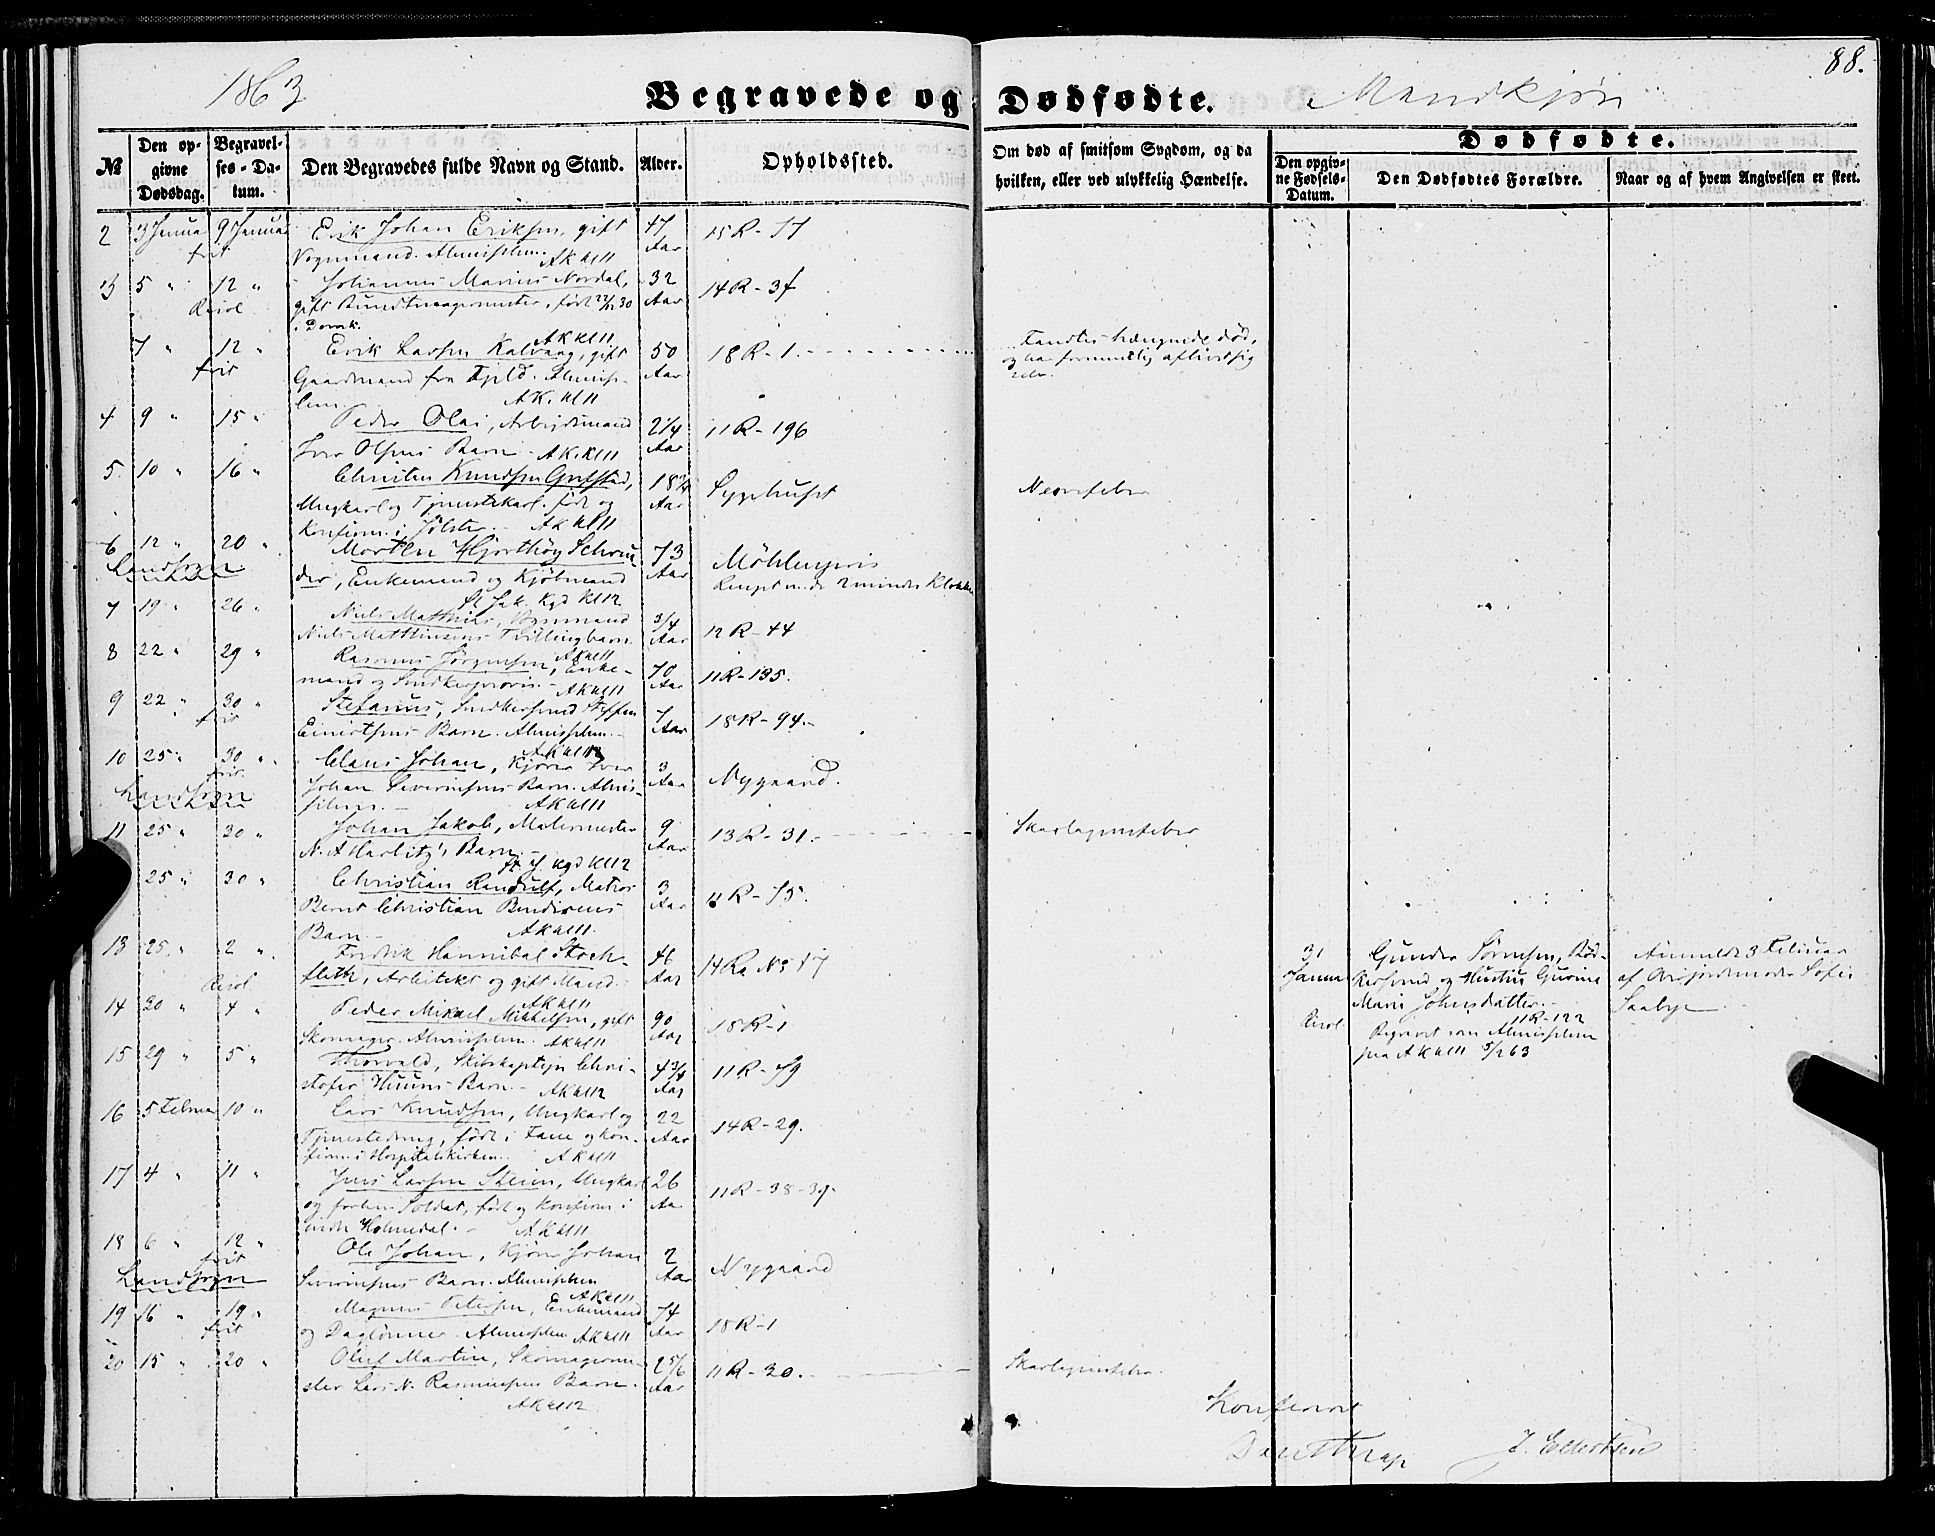 1863
Begravede og Dødfødte.
Mandkjøn
88.
№
Den opgivne Dødsdag.
Begravelses-Datum.
Den Begravedes fulde Navn og Stand.
Alder.
Opholdssted.
Om død af smitsom Sygdom, og da hvilken, eller ved ulykkelig Hændelse.
Dødfødte.
Den opgivne Fødsels-Datum.
Den Dødfødtes Forældre.
Naar og af hvem Angivelsen er skeet.
2 3 Janua 9 Janua Erik Johan Eriksen, gift 47 Aar 15R-77
frit Vognmand. Almisselem. AK kl 11
3 5 " 12 " Johannes Marius Nordal, 32 Aar 14R-34
gift Bundtmagermester, født
7 " 12 " AK kl 11
Erik Larsen Kalvaag, gift 50 Aar 18R-1.
frit Gaardmand fra Fjeld. Almisselem. AK. kl 11
Fandtes hængende død,
og har formentlig aflivet sig
4 9 " 15 " Peder Olai, Arbeidsmand 2 1/4 Aar 11R-196
Iver Olsens Barn AK. kl 11
5. 10 " 16 " Christen Knudsen 18 Aar Sygehuset
Ungkarl og Tjenestekarl. født og
Konfirm. i Jølster. AK kl 11
6 12 " 20 " Morten Hjorthøy Schrøder, 73 Aar Möhlenpris
Landsogn Enkemand og Kjøbmand
St Jak. Kgd Kl 12
7 19 " 26 " Niels Matthias, Vognmand 3/4 Aar 12R-44
Niels Matthiesens Tvillingbarn
AK kl 11
8 22 " 29 " Rasmus Jørgensen, Enkemand 70 Aar 11R-135.
AK kl 11
9 22 " 30 " Stefanus, Snedkersvend Steffen 7 Aar 18R-94.
frit Barn. Almisselem.
AK kl 12
10 25 " 30 " Claus Johan, Kjører Iver 3 Aar Nygaard.
frit Johan Severinsens Barn. Almisselem.
Landsogn AK kl 11
11 25 " 30 " Johan Jakob, Malermester 9 Aar 13R-31.
N. A Harlitz's Barn. Kgd Kl 12
Skarlagensfeber
25 " 30 " Christian Randulf, Matros 3 Aar 11R-75.
Bernt Christian Bendixens
Barn AK kl 11.
13 25 " 2 " Fredrik Hannibal Stockfleth, 46 Aar 14Ra No 17
Arkitekt og gift Mand.
AK kl 11
31 Janua
Gunder Sørensen,
og Hustru Gurine
Marie Johnsdatter.
11R-122
Begravet som Almisselem
paa AK kl 11 5/2 63
Anmeldt 3 Februar
af Sofie
Saabye
14 20 " 4 " Peder Mikael Mikkelsen, gift 90 Aar 18R-1
Skomager. Almisselem. AK kl 11
15 29 " 5 " Thorvald, Skibskaptejn Christofer 4 3/4 Aar 11R-79
Barn. AK kl 12
16 5 Februa 10 " Lars Knudsen, Ungkarl og 22 Aar 14R-29.
Tjenestedreng, født i Fane og konfirm. i Hospitalskirken. AK kl 11
17 4 " 11 " Jens Larsen Steien, Ungkarl 26 Aar 11R-38-39.
og forhen Soldat, født og konfirm. i
Indre Holmedal. AK kl 11
18 6 " 12 " Ole Johan, Kjører Johan 2 Aar Nygaard
frit Severinsens Barn. Almisselem
Landsogn AK kl 11
19 16 " 19 " Magnus Petersen, Enkemand 74 Aar 18R-1
frit og Daglønner. Almisselem AK kl 11
20 15 " 20 " Oluf Martin, Skomagermester 2 5/6 Aar 11R-30.
Lars N. Rasmussens Barn.
AK kl 12
Skarlagensfeber
Konfereret
J. Ellertsen